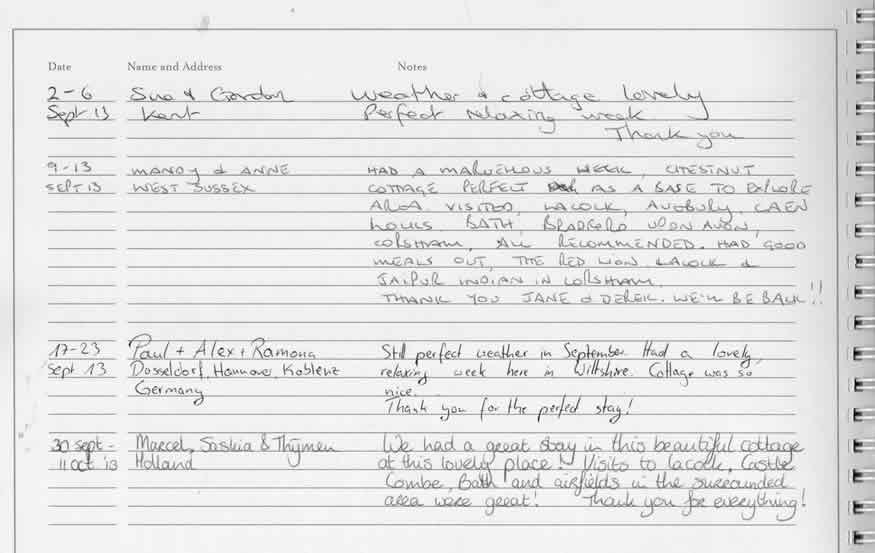 Date Name and Address Notes
2-6 Sue & Gordon Weather & cottage lovely
Sept 13 Kent Perfect relaxing week
Thank you
9-13 MANDY & ANNE HAD A MARVELLOUS WEEK, CHESTNUT
SEPT 13 WEST SUSSEX COTTAGE PERFECT AS A BASE TO EXPLORE
AREA VISITED, LACOCK, AVEBURY, CAEN
LOCKS, BATH, BRADFORD UPON AVON,
CORSHAM, ALL RECOMMENDED. HAD GOOD
MEALS OUT, THE RED LION LACOCK &
JAIPUR INDIAN IN CORSHAM.
THANK YOU JANE & DEREK. WE'LL BE BACK!!
17-23 Paul + Alex + Ramona Still perfect weather in September. Had a lovely,
Sept 13 Dosseldorf, Hannover, Koblenz relaxing week here in Wiltshire. Cottage was so
Germany nice.
Thank you for the perfect stay!
30 sept - Marcel, Saskia & Thymen We had a great stay in this beautiful cottage
11 oct '13 Holland at this lovely place! Visits to Lacock, Castle
Combe, Bath and airfields in the surrounded
area were great! Thank you for everything!